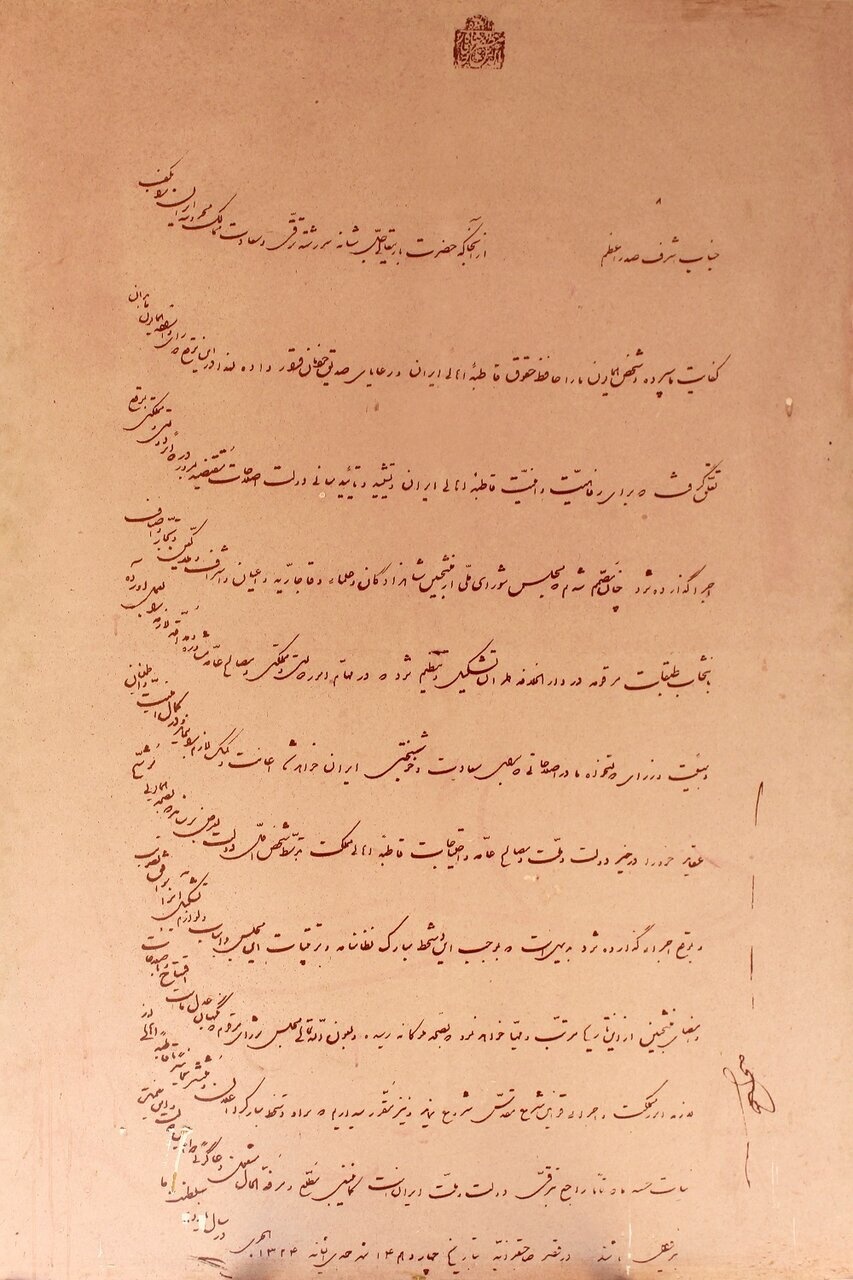 جناب اشرف صدر اعظم از آنجا که حضرت باریتعالی جلّ شأنه سررشته ترقّی و سعادت ممالک محروسه ایران را بکف
کفایت ما سپرده و شخص همایون ما را حافظ حقوق قاطبهٔ اهالی ایران و رعایای صدیق خودمان قرار داده لهذا در این موقع که رای و اراده همایون ما بدان
تعلّق گرفت که برای رفاهیّت و امنیّت قاطبهٔ اهالی ایران و تشیید و تأیید مبانی دولت اصلاحات مُقتضیه بمرور در دوائر دولتی و مملکتی بموقع
اجرا گذارده شود چنان مصمّم شدیم که مجلس شورای ملّی از منتخبین شاهزادگان و علماء و قاجاریّه و اعیان و اشراف و ملاکین و تجّار و اصناف
بانتخاب طبقات مرقومه در دارالخلافه طهران تشکیل و تنظیم شود که در مهامّ امور دولتی و مملکتی و مصالح عامّه مشاوره و مداقّه لازمه را بعمل آورده
و بهیئت وزرای دولتخواه ما در اصلاحاتی که برای سعادت و خوشبختی ایران خواهد شد اعانت و کمک لازم را بنماید و در کمال امنیّت و اطمینان
عقاید خود را در خیر دولت و ملّت و مصالح عامّه و احتیاجات قاطبهٔ اهالی مملکت بتوسّط شخص اوّل دولت بعرض برساند که بصحّه همایونی موشّح
و بموقع اجرا گذارده شود بدیهی است که بموجب این دستخط مبارک نظامنامه و ترتیبات این مجلس و اسباب و لوازم تشکیل آنرا موافق تصویب
و امضای منتخبین از این تاریخ مرتّب و مهیّا خواهد نمود که بصحّه ملوکانه رسیده و بعون الله تعالی مجلس شورای مرقوم که نگهبان عدل ماست افتتاح و باصلاحات
لازمه امور مملکت و اجراء قوانین شرع مقدّس شروع نماید و نیز مقرّر میداریم که سواد دستخط مبارک را اعلان و مُنتشر نمایند تا قاطبهٔ اهالی از
نیات حسنه ما که تماماً راجع بترقّی دولت و ملّت ایران است کماینبغی مطّلع و مرفّه الحال مشغول دعاگوئی
در قصر صاحبقرانیّه بتاریخ چهاردهم شهر جمادی الثانیه ۱۳۲۴ هجری در سال یازدهم سلطنت ما